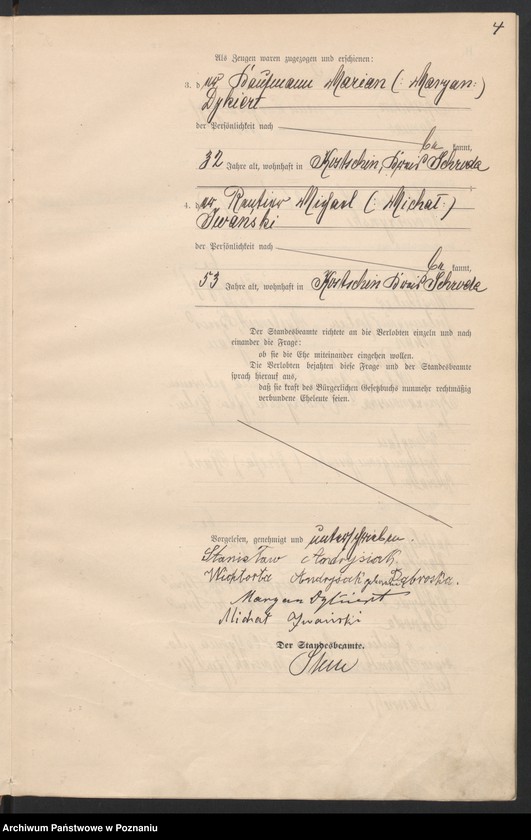 4
Als Zeugen waren zugezogen und erschienen:
3. der Kaufmann Marian (: Maryan :)
Dykiert
der Persönlichkeit nach
be kannt,
32 Jahre alt, wohnhaft in Kostschin, Kreis Schroda
4. der Rentier Michael (: Michał :)
Iwański
der Persönlichkeit nach
be kannt,
53 Jahre alt, wohnhaft in Kostschin Kreis Schroda
Der Standesbeamte richtete an die Verlobten einzeln und nach
einander die Frage:
ob sie die Ehe miteinander eingehen wollen.
Die Verlobten bejahten diese Frage und der Standesbeamte
sprach hierauf aus,
daß sie kraft des Bürgerlichen Gesetzbuchs nunmehr rechtmäßig
verbundene Eheleute seien.
Vorgelesen, genehmigt und unterschrieben.
Stanisław Andrysiak
Wicktorta Andrysiak geborene Dąbroska.
Maryan Dykiert
Michał Iwański
Der Standesbeamte.
Archiwum Państwowe w Poznaniu